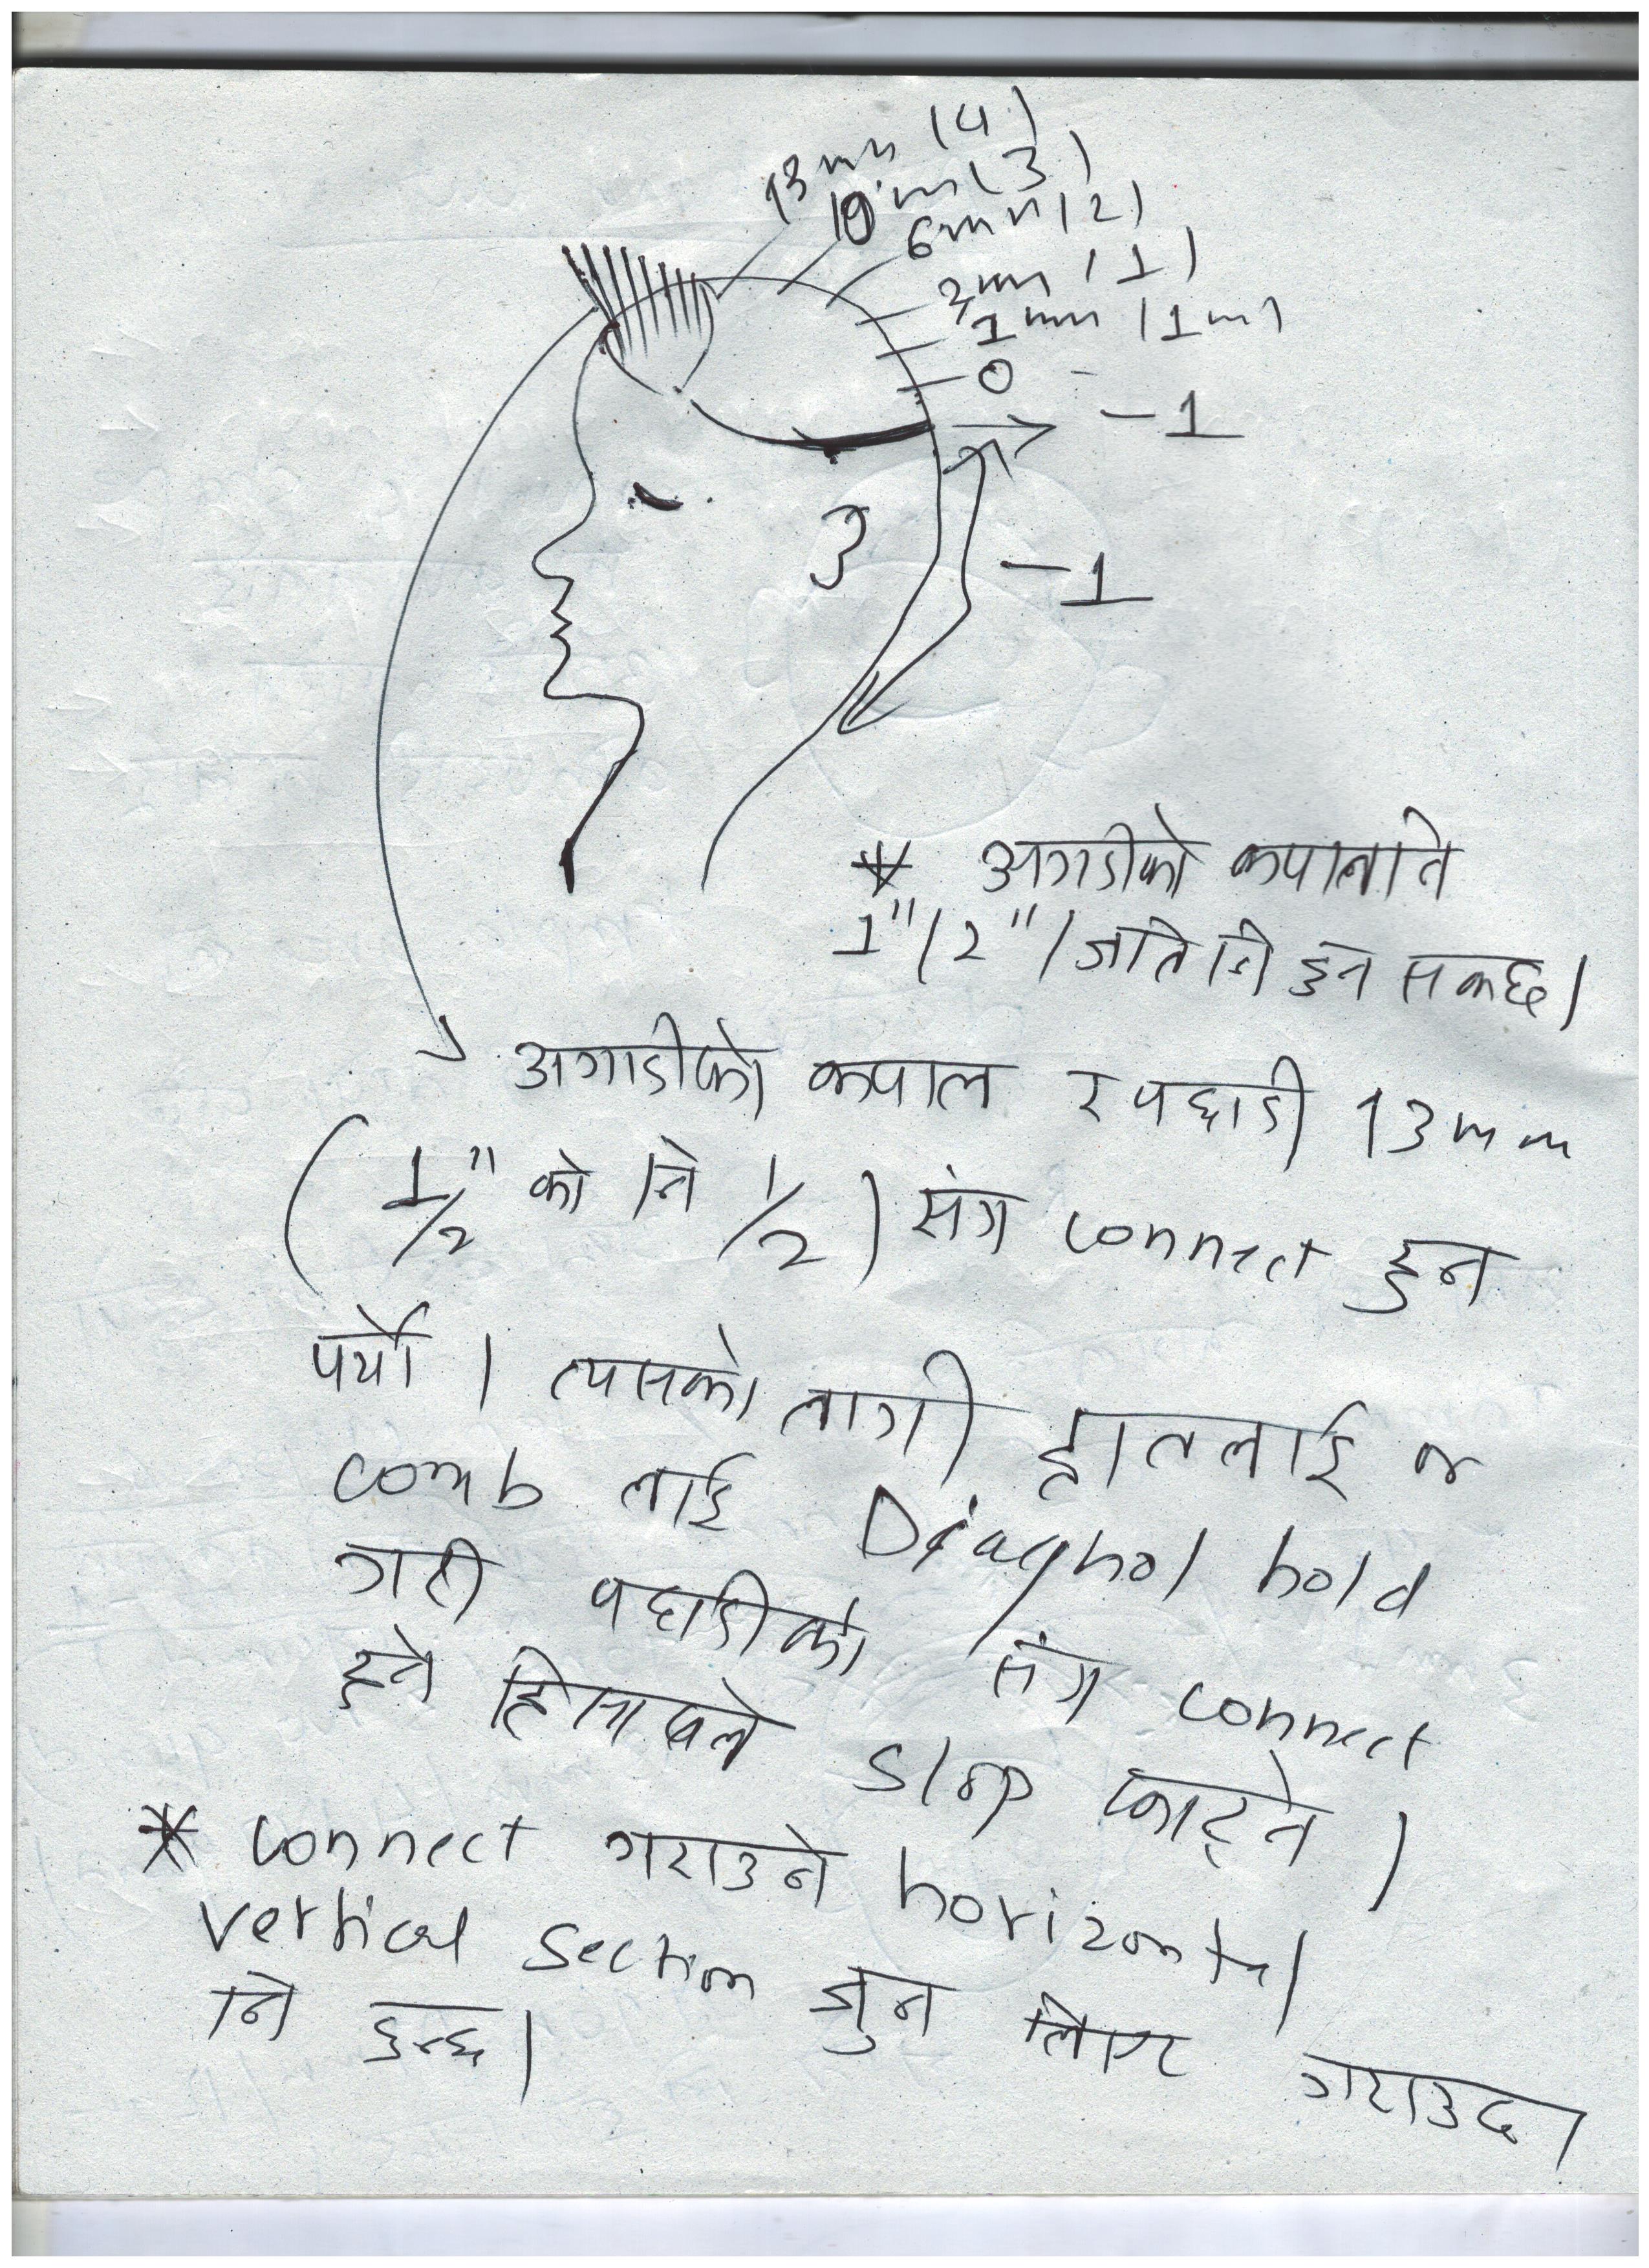 13mm (4)
10mm (3)
6mm (2)
3mm (1)
1mm (1m)
0 -
-1
-1
* अगाडीको कपाल त
1"/2"/जति नि हुन सक्छ।
अगाडीको कपाल र पछाडी 13mm
(1/2" को नि 1/2) संग connect हुन
पर्यो। त्यसको लागी हातलाई or
comb लाई Diagnol hold
गरी पछाडीको संग connect
हुने हिसाबले slop काट्ने।
* connect गराउने horizontal
vertical section जुन लिएर गराउदा
नि हुन्छ।